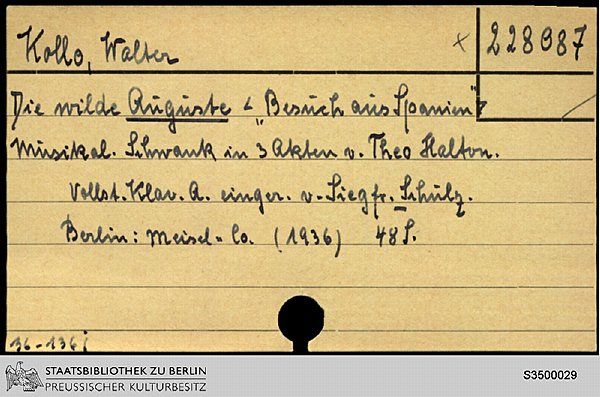 Kollo, Walter × 228087
Die wilde Auguste < "Besuch aus Spanien" >
Musikal. Schwank in 3 Akten v. Theo Halton.
Vollst. Klav. A. einger. v. Siegfr. Schulz.
Berlin: Meisel-Co. (1936) 48 S.
36-136
STAATSBIBLIOTHEK ZU BERLIN
PREUSSISCHER KULTURBESITZ
S3500029